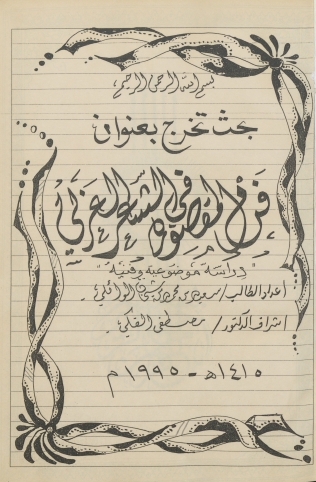 بسم الله الرحمن الرحيم
بحث تخرج بعنوان
المقصوفي الشاعر الغزلي
"دراسة موضوعية وفنية"
أعداد الطالب / سعود بن محمد الوائلي
إشراف الدكتور / مصطفى الفكي
١٤١٥هـ - ١٩٩٥م